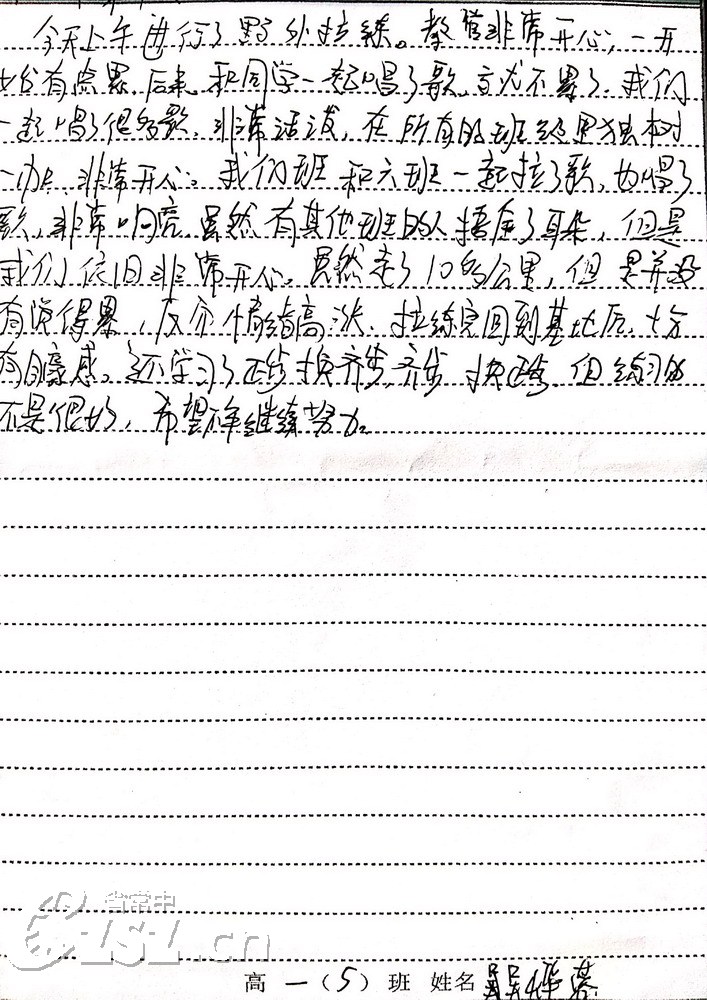 今天上午进行了野外拉练。教官非常开心，一开
始有点累，后来和同学一起唱了歌，立刻不累了，我们
一起唱了很多歌，非常活泼，在所有的班级里独树
一帜，非常开心。我们班和六班一起拉了歌，也唱了
歌，非常响亮，虽然有其他班的人捂住了耳朵，但是
我们依旧非常开心。虽然走了10多公里，但是并没
有觉得累，反而情绪高涨，拉练完回到基地后，十分
有自豪感。还学习了正步换齐步，齐步换正步，但练习的
不是很好，希望继续努力。
省常中
czsz.cn
高一（5）班 姓名 吴